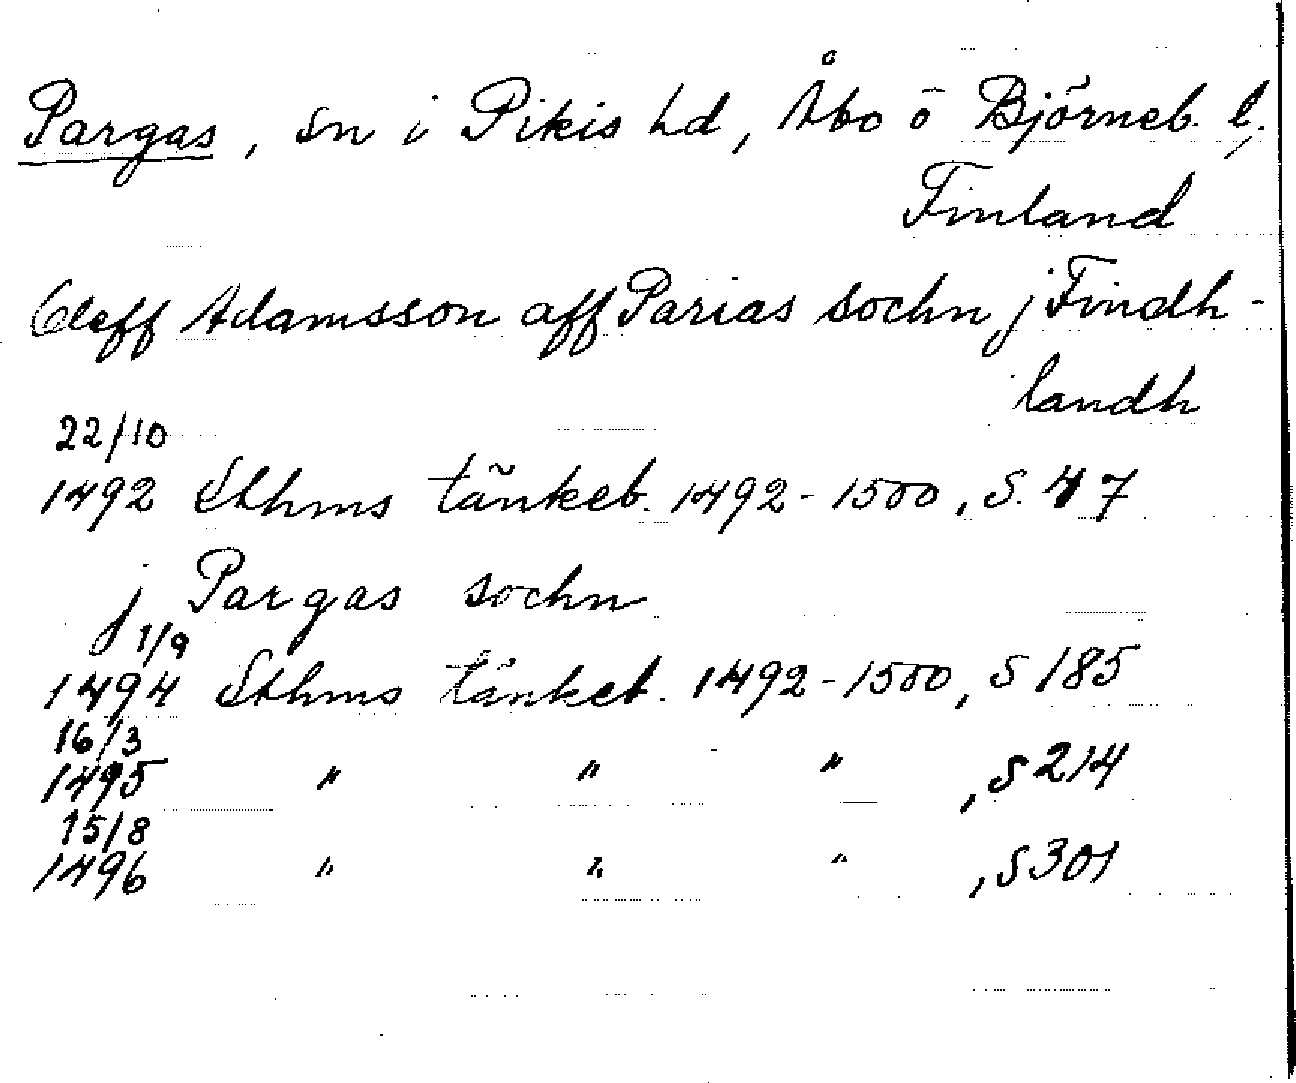 Pargas, sn i Pikis hd, Åbo o Björneb. l.,
Finland
Oleff Adamsson aff Parias sochn j Findh-
landh
22/10
1492 Sthms tänkeb. 1492-1500, S. 47
j Pargas sochn
1/9
1494 Sthms tänkeb. 1492-1500, S 185
16/3
1495 " " " , S 214
15/8
1496 " " " , S 301